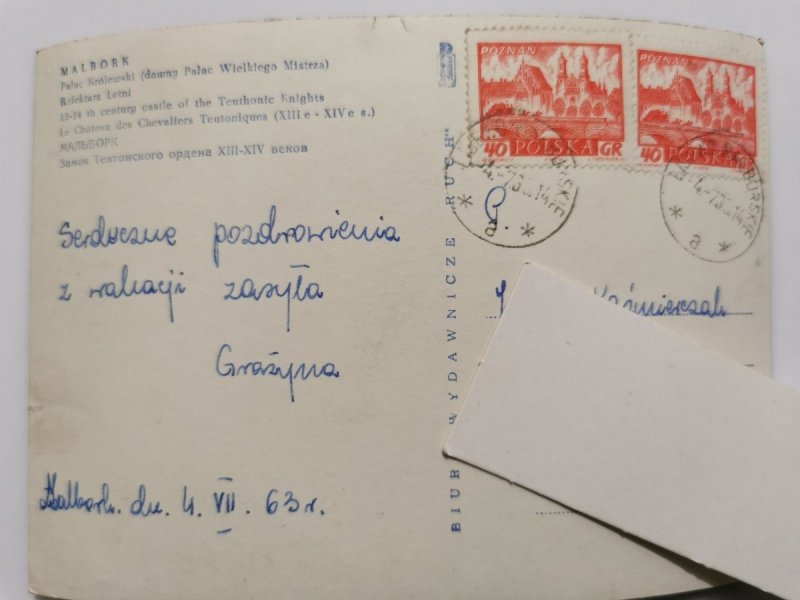 MALBORK
Pałac Królewski (dawny Pałac Wielkiego Mistrza)
Refektarz Letni
13-14 th century castle of the Tenthonte Knights
Le Château des Chevaliers Teutoniques (XIII e - XIV e s.)
МАЛЬБОРК
Замок Тевтонского ордена XIII-XIV веков
Serdeczne pozdrowienia
z wakacji zasyła
Grażyna
Malbork. dn. 4. VII. 63 r.
BIURO WYDAWNICZE "RUCH"
POZNAŃ
40 POLSKA GR
POZNAŃ
40 POLSKA GR
Kaźmierczak